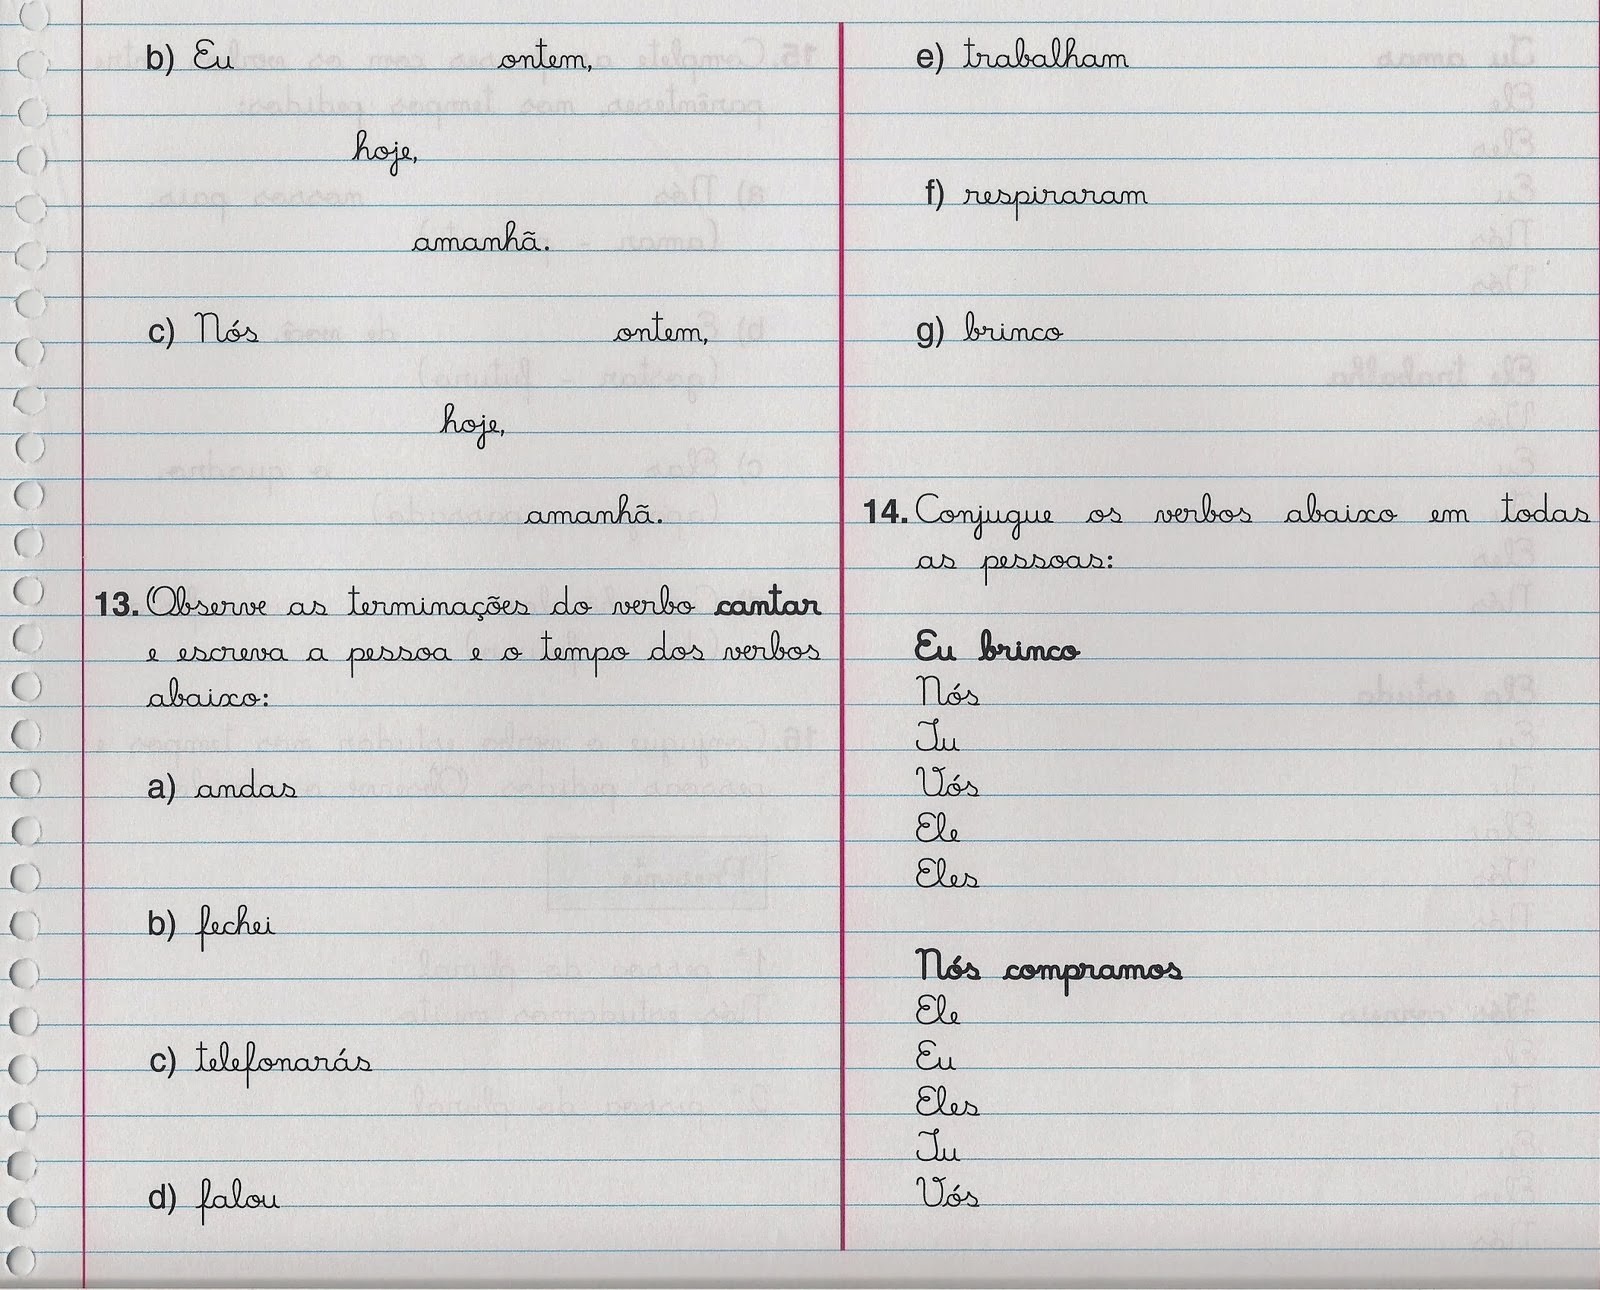 b) Eu ontem,
hoje,
amanhã.
c) Nós ontem,
hoje,
amanhã.
13. Observe as terminações do verbo cantar
e escreva a pessoa e o tempo dos verbos
abaixo:
a) andas
b) fechei
c) telefonarás
d) falou
e) trabalham
f) respiraram
g) brinco
14. Conjugue os verbos abaixo em todas
as pessoas:
Eu brinco
Nós
Tu
Vós
Ele
Eles
Nós compramos
Ele
Eu
Eles
Tu
Vós